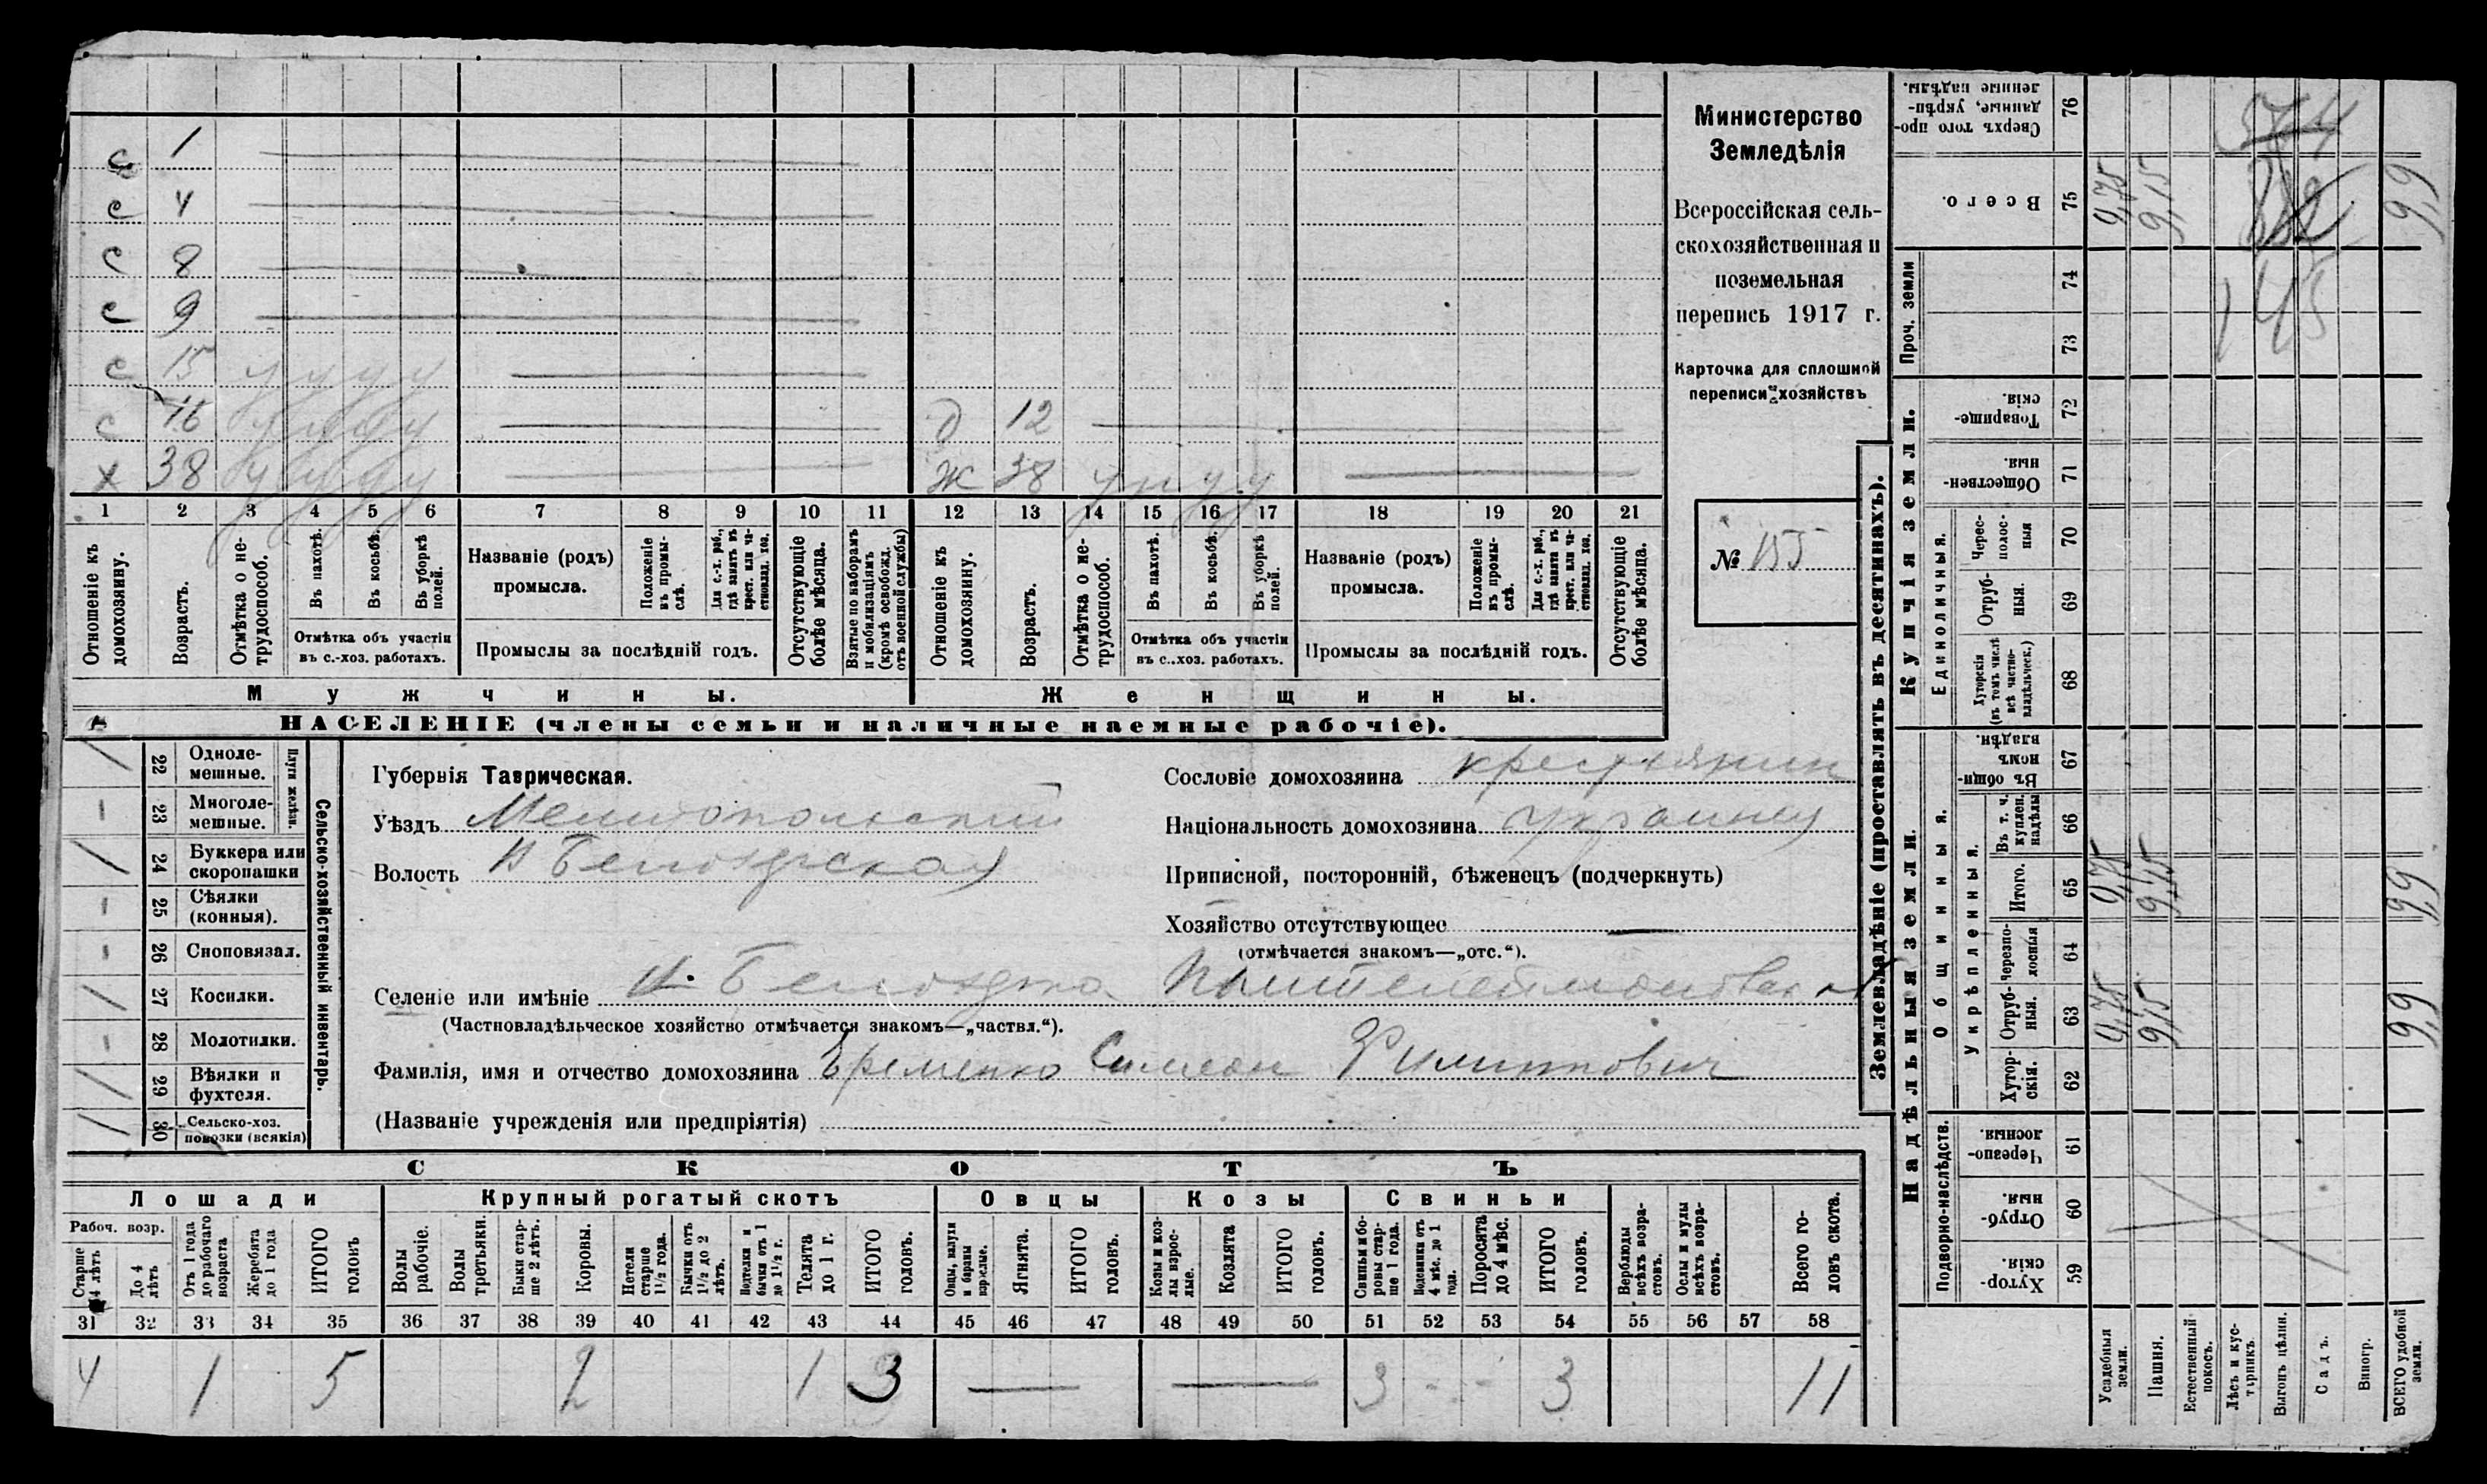 с 1
с 4
с 8
с 9
с 15
с 16
х 38
д 12
ж 38
1 2 3 4 5 6 7 8 9 10 11 12 13 14 15 16 17 18 19 20 21
Отношеніе къ домохозяину.
Возрастъ.
Отмѣтка о не-
трудоспособ.
Въ пахотѣ.
Въ косьбѣ.
Въ уборкѣ
полей.
Отмѣтка объ участіи
въ с.-хоз. работахъ.
Названіе (родъ)
промысла.
Положеніе
въ промы-
слѣ.
Для с.-х. раб.,
гдѣ занятъ въ
крест. или ча-
стновлад. хоз.
Промыслы за послѣдній годъ.
Отсутствующіе
болѣе мѣсяца.
Взятые по наборамъ
и мобилизаціямъ
(кромѣ освобожд.
отъ военной службы)
Отношеніе къ
домохозяину.
Возрастъ.
Отмѣтка о не-
трудоспособ.
Въ пахотѣ.
Въ косьбѣ.
Въ уборкѣ
полей.
Отмѣтка объ участіи
въ с..хоз. работахъ.
Названіе (родъ)
промысла.
Положеніе
въ промы-
слѣ.
Для с.-х. раб.,
гдѣ занята въ
крест. или ча-
стновлад. хоз.
Промыслы за послѣдній годъ.
Отсутствующіе
болѣе мѣсяца.
Мужчины.
Женщины.
НАСЕЛЕНІЕ (члены семьи и наличные наемные рабочіе).
Министерство
Земледѣлія
Всероссійская сель-
скохозяйственная и
поземельная
перепись 1917 г.
Карточка для сплошной
переписи хозяйствъ
№ 155
/ 22 Одноле-
мешные.
- 23 Многоле-
мешные.
Плуги желѣзн.
/ 24 Буккера или
скоропашки
- 25 Сѣялки
(конныя).
- 26 Сноповязал.
/ 27 Косилки.
- 28 Молотилки.
/ 29 Вѣялки и
фухтеля.
/ 30 Сельско-хоз.
повозки (всякія)
Сельско-хозяйственный инвентарь.
Губернія Таврическая.
Уѣздъ Мелитопольскій
Волость
Сословіе домохозяина крестянин
Національность домохозяина украинец
Приписной, посторонній, бѣженецъ (подчеркнуть)
Хозяйство отсутствующее —
(отмѣчается знакомъ—„отс.“).
Селеніе или имѣніе
(Частновладѣльческое хозяйство отмѣчается знакомъ—„частвл.“).
Фамилія, имя и отчество домохозяина Еременко Симеон Филиппович
(Названіе учрежденія или предпріятія)
СКОТЪ
Лошади
Крупный рогатый скотъ
Овцы
Козы
Свиньи
Рабоч. возр.
Старше
4 лѣтъ
До 4
лѣтъ
Отъ 1 года
до рабочаго
возраста
Жеребята
до 1 года
ИТОГО
головъ
Волы
рабочіе.
Волы
третьяки.
Быки стар-
ше 2 лѣтъ.
Коровы.
Нетели
старше
1½ года.
Бычки отъ
1½ до 2
лѣтъ.
Подтелки и
бычки отъ 1
до 1½ г.
Телята
до 1 г.
ИТОГО
головъ.
Овцы, валухи
и бараны
взрослые.
Ягнята.
ИТОГО
головъ.
Козы и коз-
лы взрос-
лые.
Козлята
ИТОГО
головъ.
Свиньи и бо-
ровы стар-
ше 1 года.
Подсвинки отъ
4 мѣс. до 1
года.
Поросята
до 4 мѣс.
ИТОГО
головъ.
Верблюды
всѣхъ возра-
стовъ.
Ослы и мулы
всѣхъ возра-
стовъ.
Всего го-
ловъ скота.
31 32 33 34 35 36 37 38 39 40 41 42 43 44 45 46 47 48 49 50 51 52 53 54 55 56 57 58
4 1 5 2 1 3 — — 3 - - 3 11
Землевладѣніе (проставлять въ десятинахъ).
Надѣльныя земли.
Купчія земли.
Проч. земли
Подворно-наслѣдств.
Общинныя.
Укрѣпленныя.
Единоличныя.
Хутор-
скія.
59
Отруб-
ныя.
60
Черезпо-
лосныя.
61
Хутор-
скія.
62
Отруб-
ныя.
63
Черезпо-
лосныя
64
Итого.
65
Въ т. ч.
куплен.
надѣлы
66
Въ общин-
номъ
владѣн.
67
Хуторскія
(въ томъ числѣ
всѣ частно-
владѣльческ.)
68
Отруб-
ныя.
69
Черес-
полос-
ныя
70
Обществен-
ныя.
71
Товарище-
скія.
72
73
74
Всего.
75
Сверхъ того про-
данные, укрѣп-
ленные надѣлы.
76
Усадебныя
земли.
Пашня.
Естественный
покосъ.
Лѣсъ и кус-
тарникъ.
Выгонъ цѣлин.
Садъ.
Виногр.
ВСЕГО удобной
земли.
0,75 0,75 0,75
9,15 9,15 9,15
9,9 9,9 9,9
145